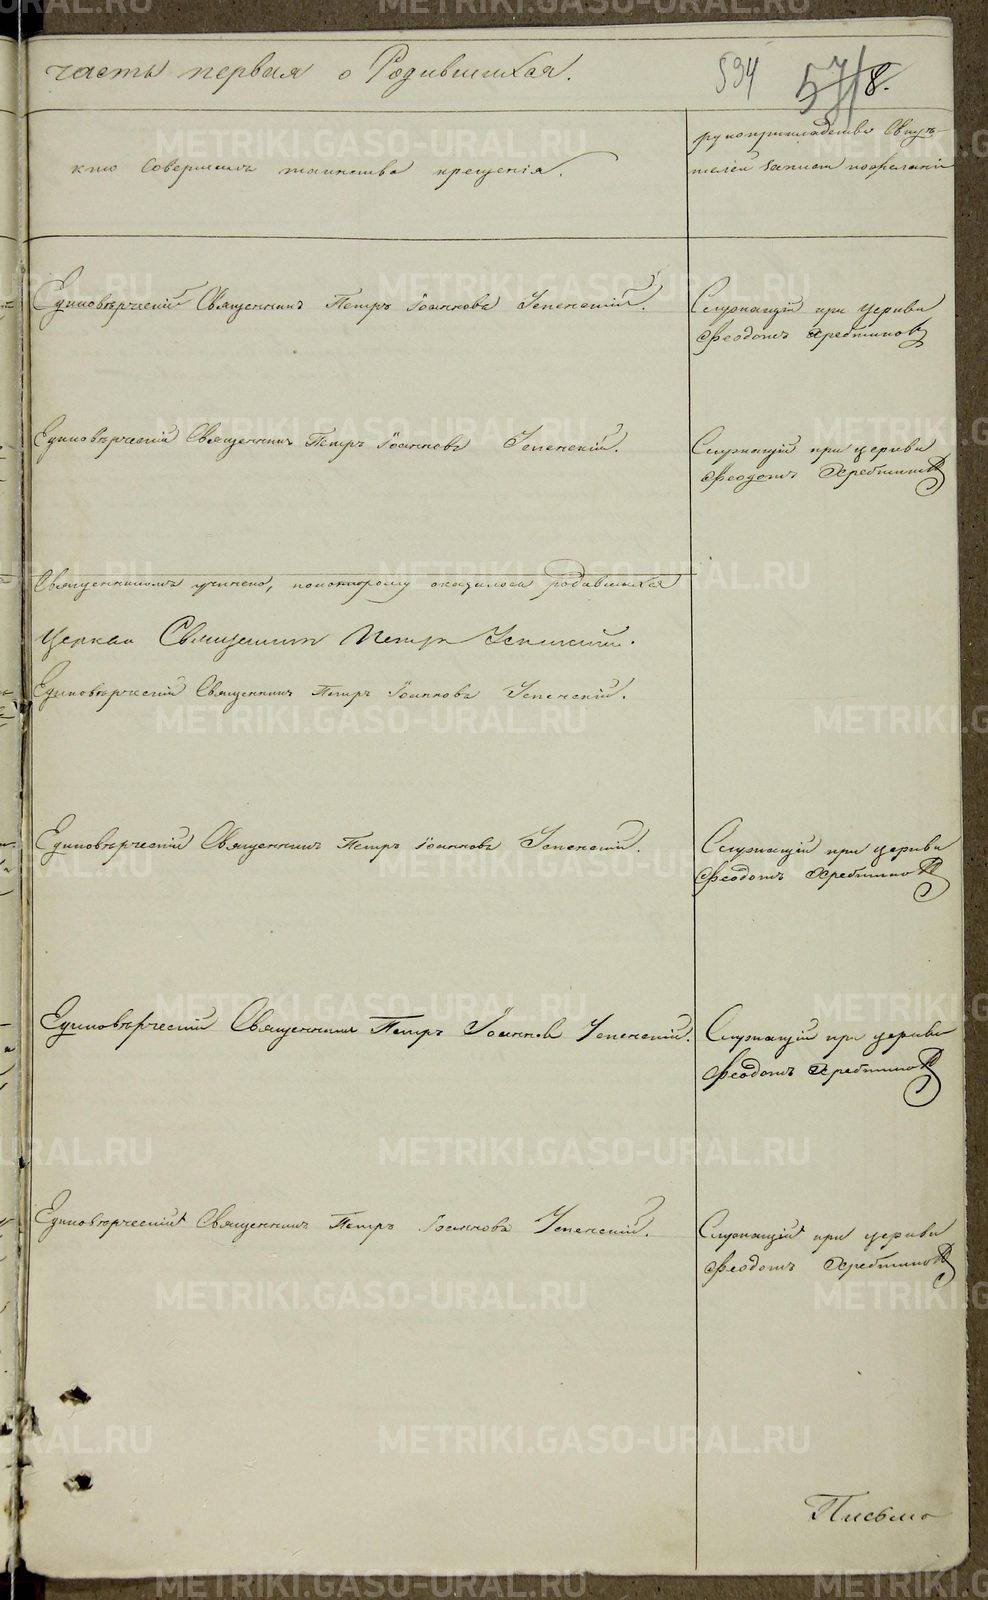 часть первая о Родившихся.
594 57/8.
кто совершалъ таинства крещенія.
рукоприкладство свидѣ-
телей записи по желанію
Единовѣрческій Священникъ Петръ Іоанновъ Успенскій.
Служащій при церкви
Феодотъ Хребтиковъ
Единовѣрческій Священникъ Петръ Іоанновъ Успенскій.
Служащій при церкви
Феодотъ Хребтиковъ
Священникомъ учинено, по которому оказалось родившихся
Церкви Священникъ Петръ Успенскій.
Единовѣрческій Священникъ Петръ Іоанновъ Успенскій.
Единовѣрческій Священникъ Петръ Іоанновъ Успенскій.
Служащій при церкви
Феодотъ Хребтиковъ
Единовѣрческій Священникъ Петръ Іоанновъ Успенскій.
Служащій при церкви
Феодотъ Хребтиковъ
Единовѣрческій Священникъ Петръ Іоанновъ Успенскій.
Служащій при церкви
Феодотъ Хребтиковъ
Письмо
METRIKI.GASO-URAL.RU